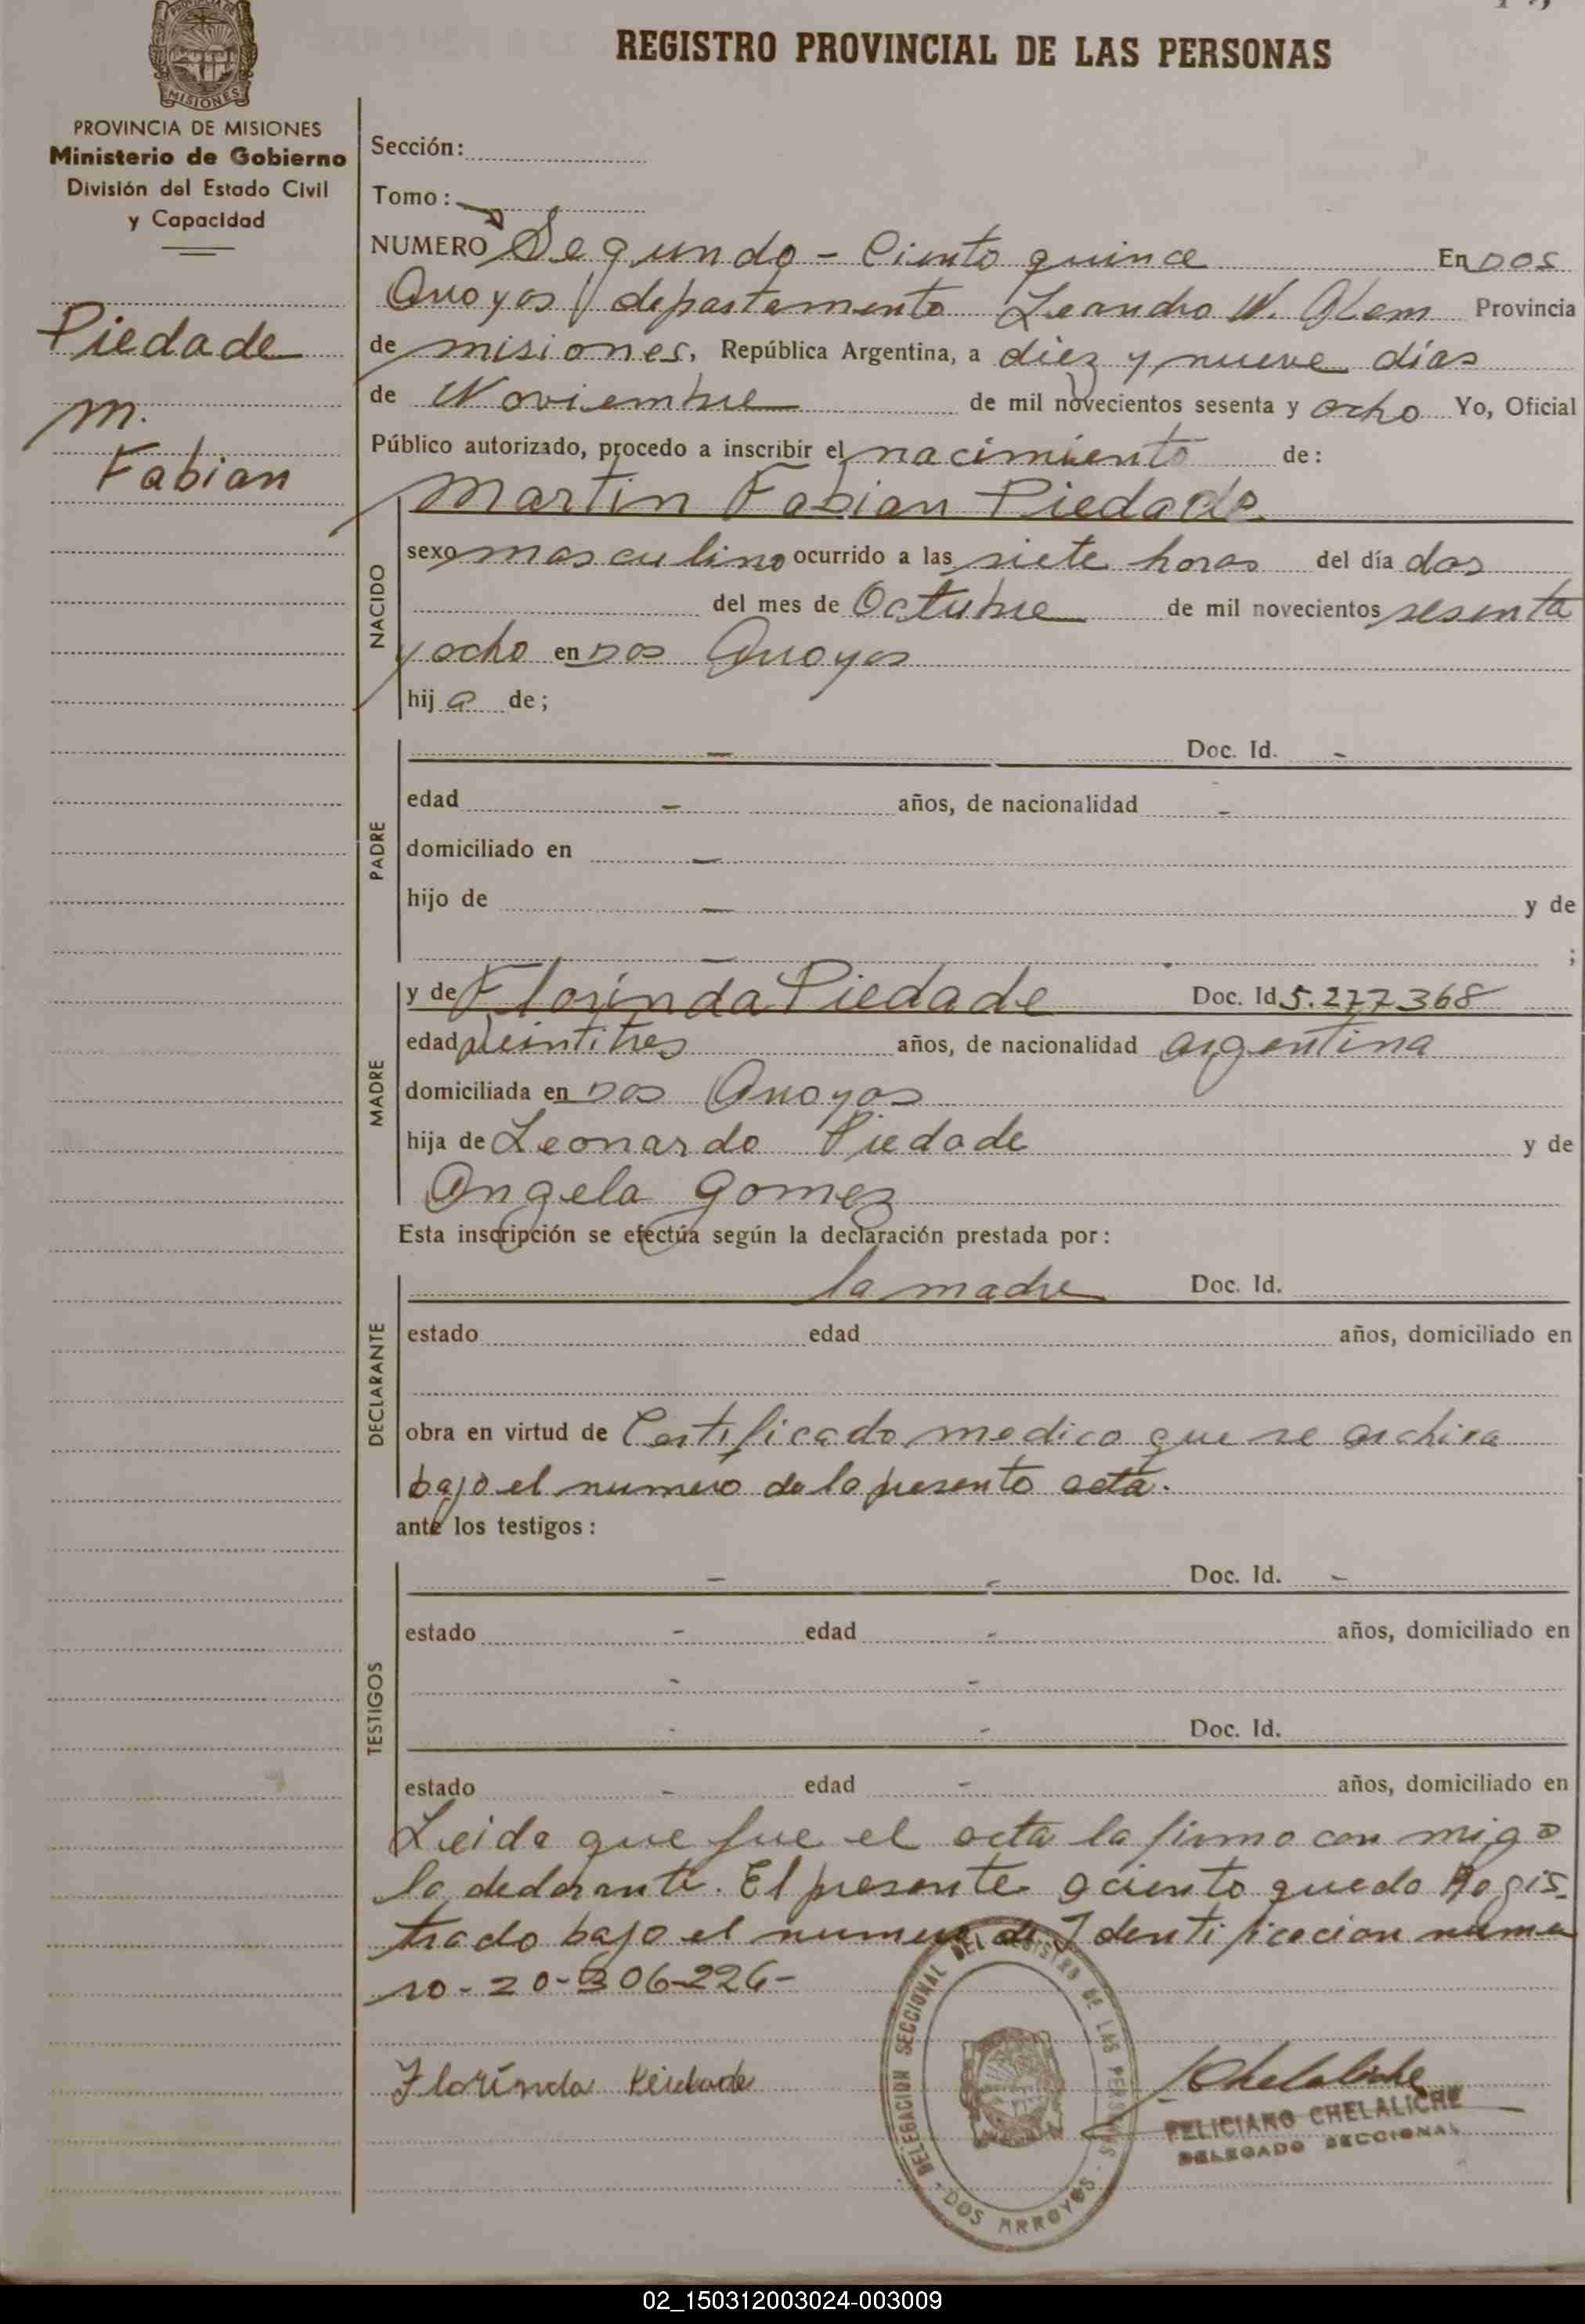 REGISTRO PROVINCIAL DE LAS PERSONAS
MISIONES
PROVINCIA DE MISIONES
Ministerio de Gobierno
División del Estado Civil
y Capacidad
Piedade
M.
Fabian
Sección:
Tomo:
NUMERO Segundo - Ciento quince En Dos
Arroyos departamento Leandro N. Alem Provincia
de misiones, República Argentina, a diez y nueve días
de Noviembre de mil novecientos sesenta y ocho Yo, Oficial
Público autorizado, procedo a inscribir el nacimiento de:
NACIDO
Martin Fabian Piedade
sexo masculino ocurrido a las siete horas del día dos
del mes de Octubre de mil novecientos sesenta
y ocho en Dos Arroyos
hij a de;
PADRE
- Doc. Id. -
edad - años, de nacionalidad -
domiciliado en -
hijo de - y de
- ;
MADRE
y de Florinda Piedade Doc. Id 5.277.368
edad Veintitres años, de nacionalidad argentina
domiciliada en Dos Arroyos
hija de Leonardo Piedade y de
Angela Gomez
Esta inscripción se efectúa según la declaración prestada por:
DECLARANTE
la madre Doc. Id.
estado edad años, domiciliado en
obra en virtud de Certificado medico que se archiva
bajo el numero de la presente acta.
ante los testigos:
TESTIGOS
- - Doc. Id. -
estado - edad - años, domiciliado en
- -
- - Doc. Id.
estado - edad - años, domiciliado en
Leida que fue el acta la firma con migo
la declarante. El presente aciento queda Regis-
trado bajo el numero de Identificacion nume
ro - 20-306-226-
Florínda Peidade
Chelaliche
FELICIANO CHELALICHE
DELEGADO SECCIONAL
DELEGACION SECCIONAL DEL REGISTRO DE LAS PERSONAS - DOS ARROYOS -
02_150312003024-003009